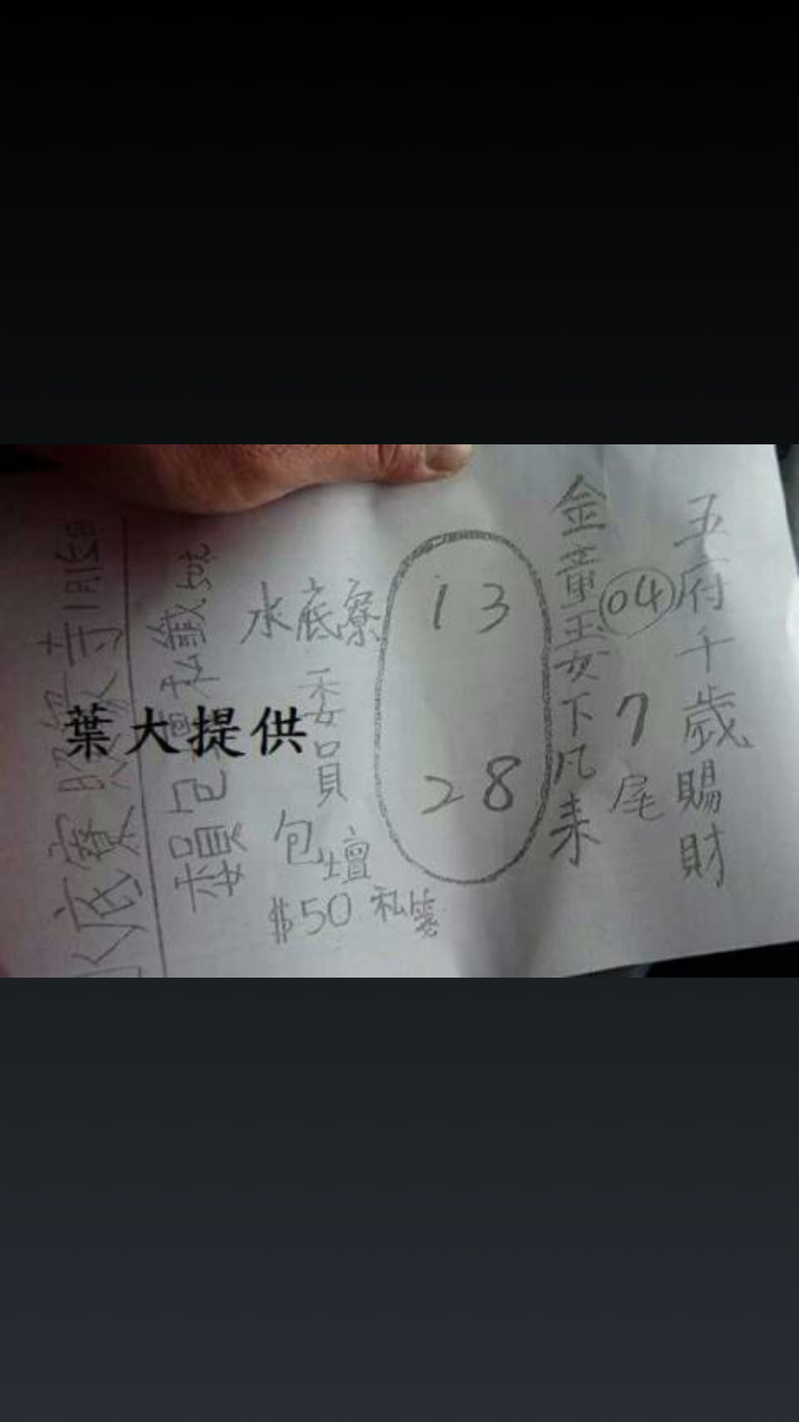 五府千歲賜財
04 7尾
金童玉女下凡来
13
28
水底寮
委員
包壇
$50 私籤
葉大提供
水底寮照嚴寺1月15日